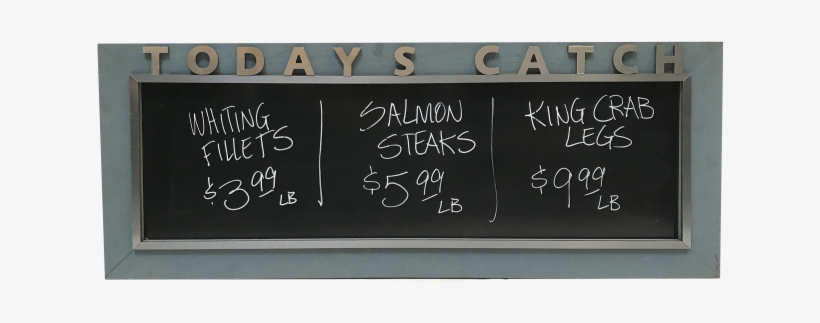 TODAYS CATCH
WHITING
FILLETS
$3.99 LB
SALMON
STEAKS
$5.99 LB
KING CRAB
LEGS
$9.99 LB